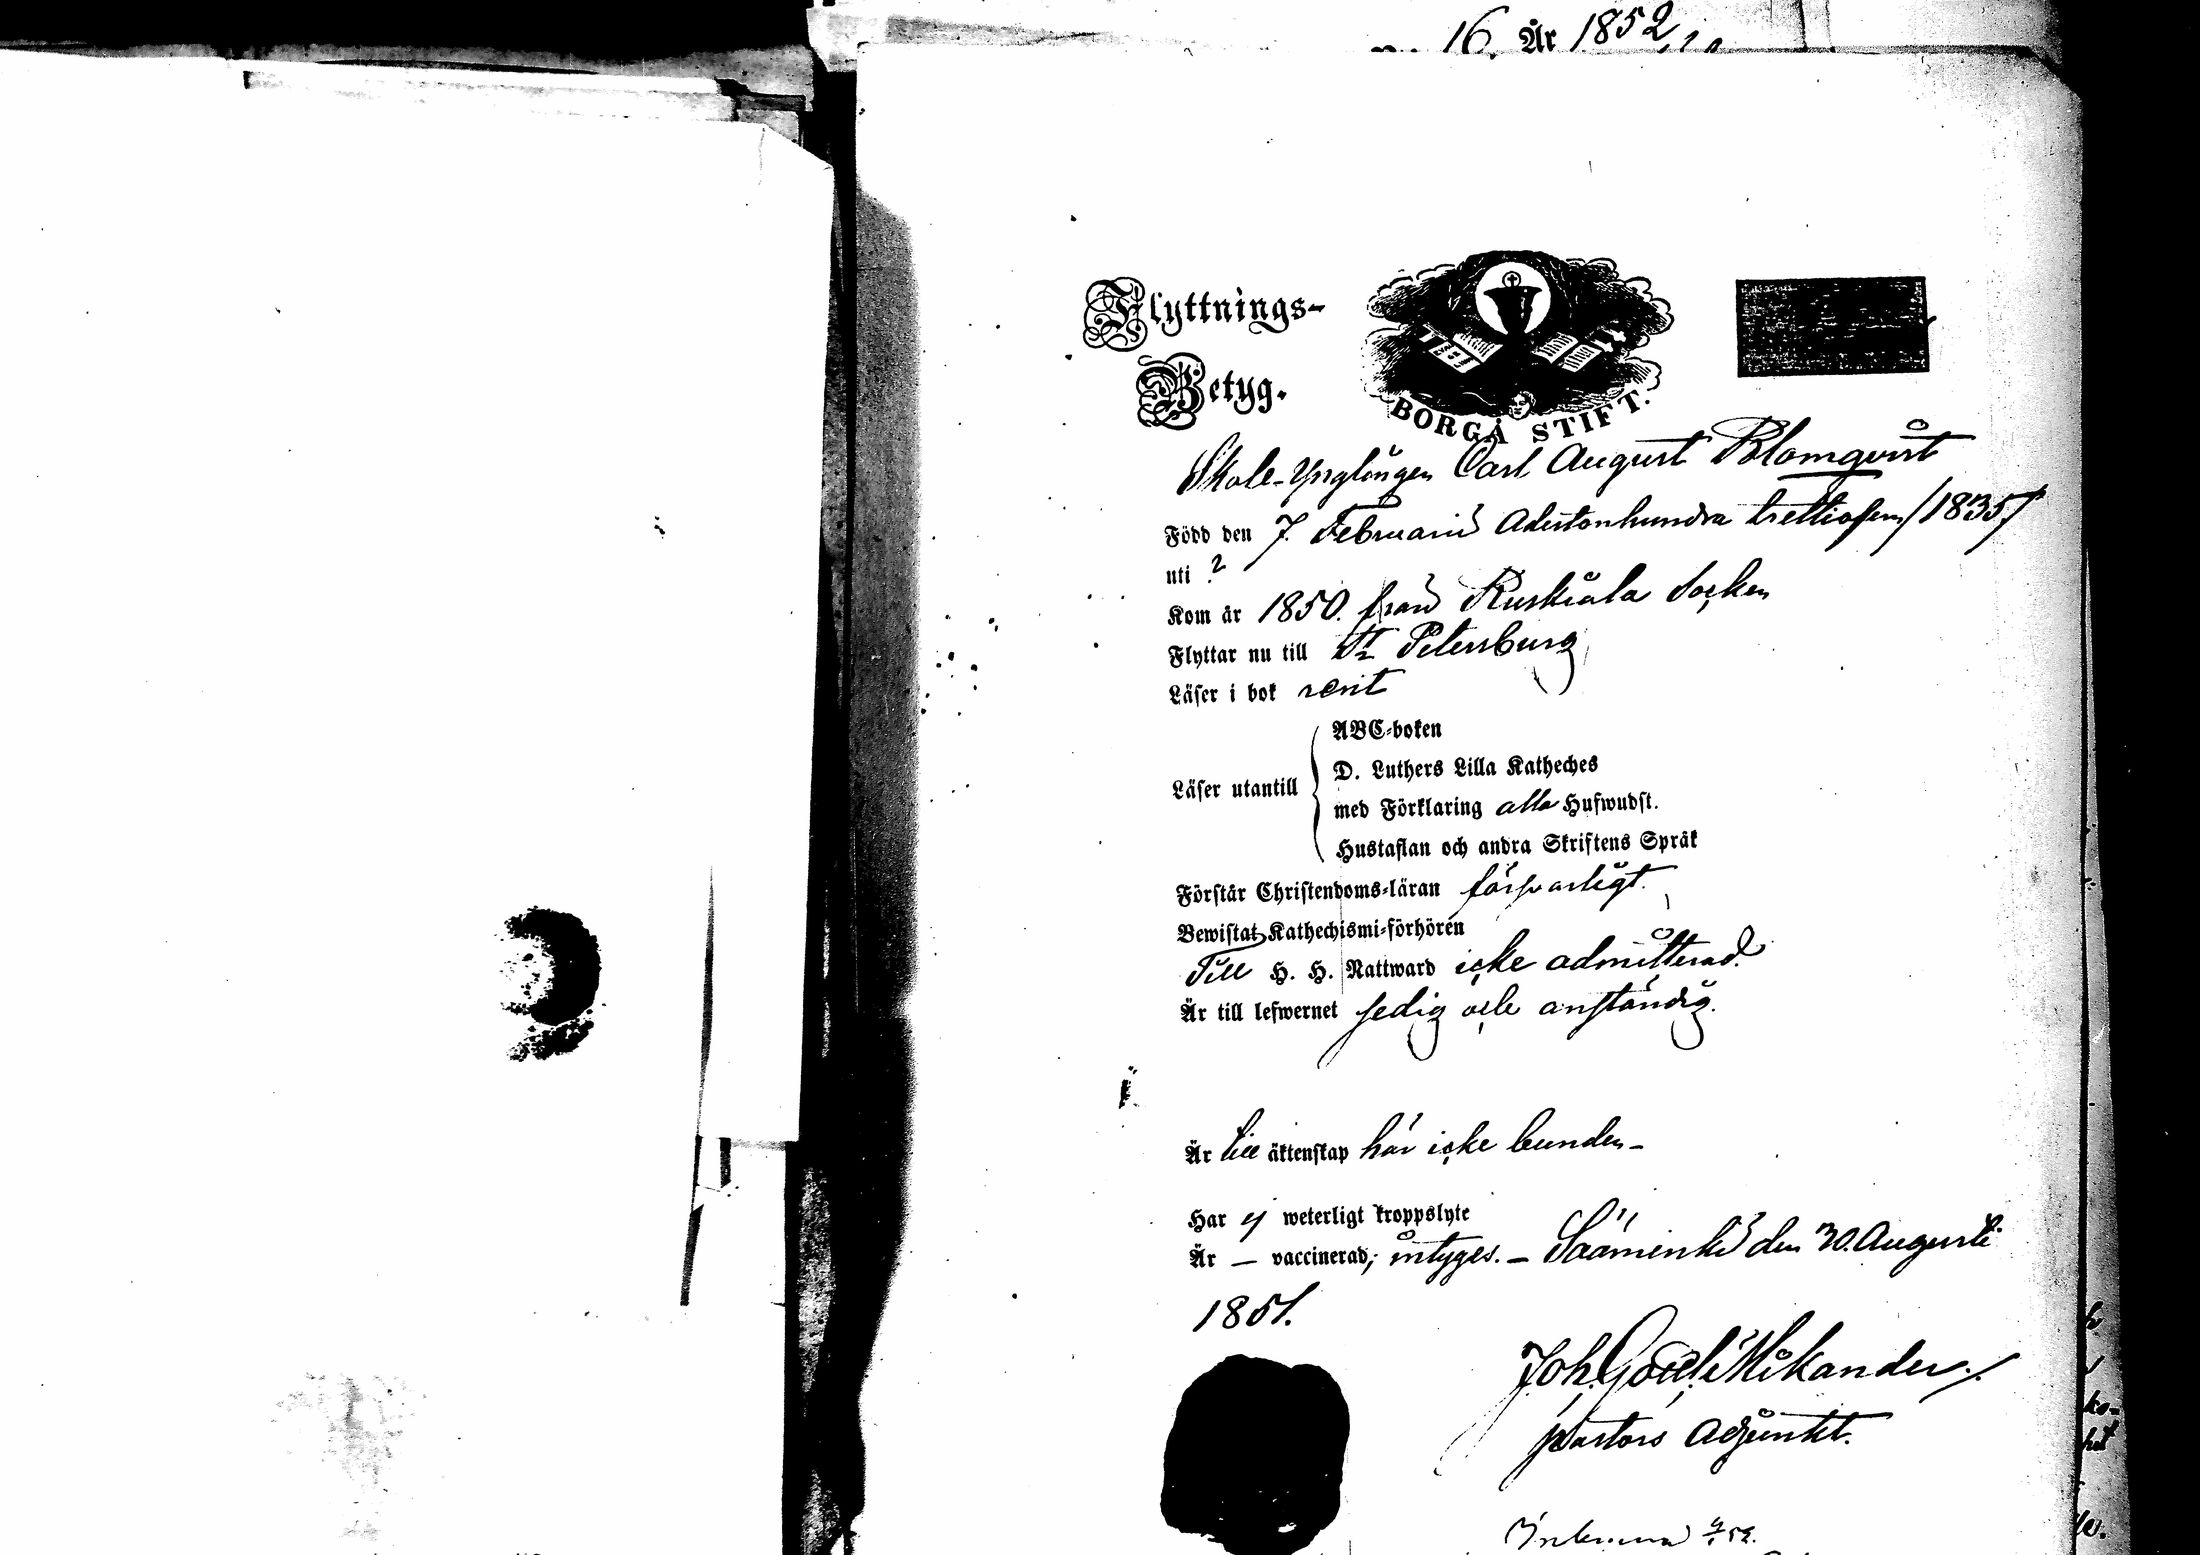 16. År 1852
Flyttnings-
Betyg.
BORGÅ STIFT.
Skole-Ynglingen Carl August Blomqvist
Född den 7. Februarii Adertonhundra trettiofem /1835/
uti ?
Kom år 1850. från Ruskiala Socken
Flyttar nu till St Petersburg
Läser i bok rent
ABC-boken
D. Luthers Lilla Katheches
Läser utantill
med Förklaring alla Hufwudst.
Hustaflan och andra Skriftens Språk
Förstår Christendoms-läran försvarligt.
Bewistat Kathechismi-förhören
Till H. H. Nattward icke admitterad.
Är till lefwernet sedig och anständig.
Är till äktenskap här icke bunden-
Har ej weterligt kroppslyte
Är — vaccinerad; intygas. — Sääminki den 30. Augusti
1851.
Joh. Mikander.
Pastors Adjunkt.